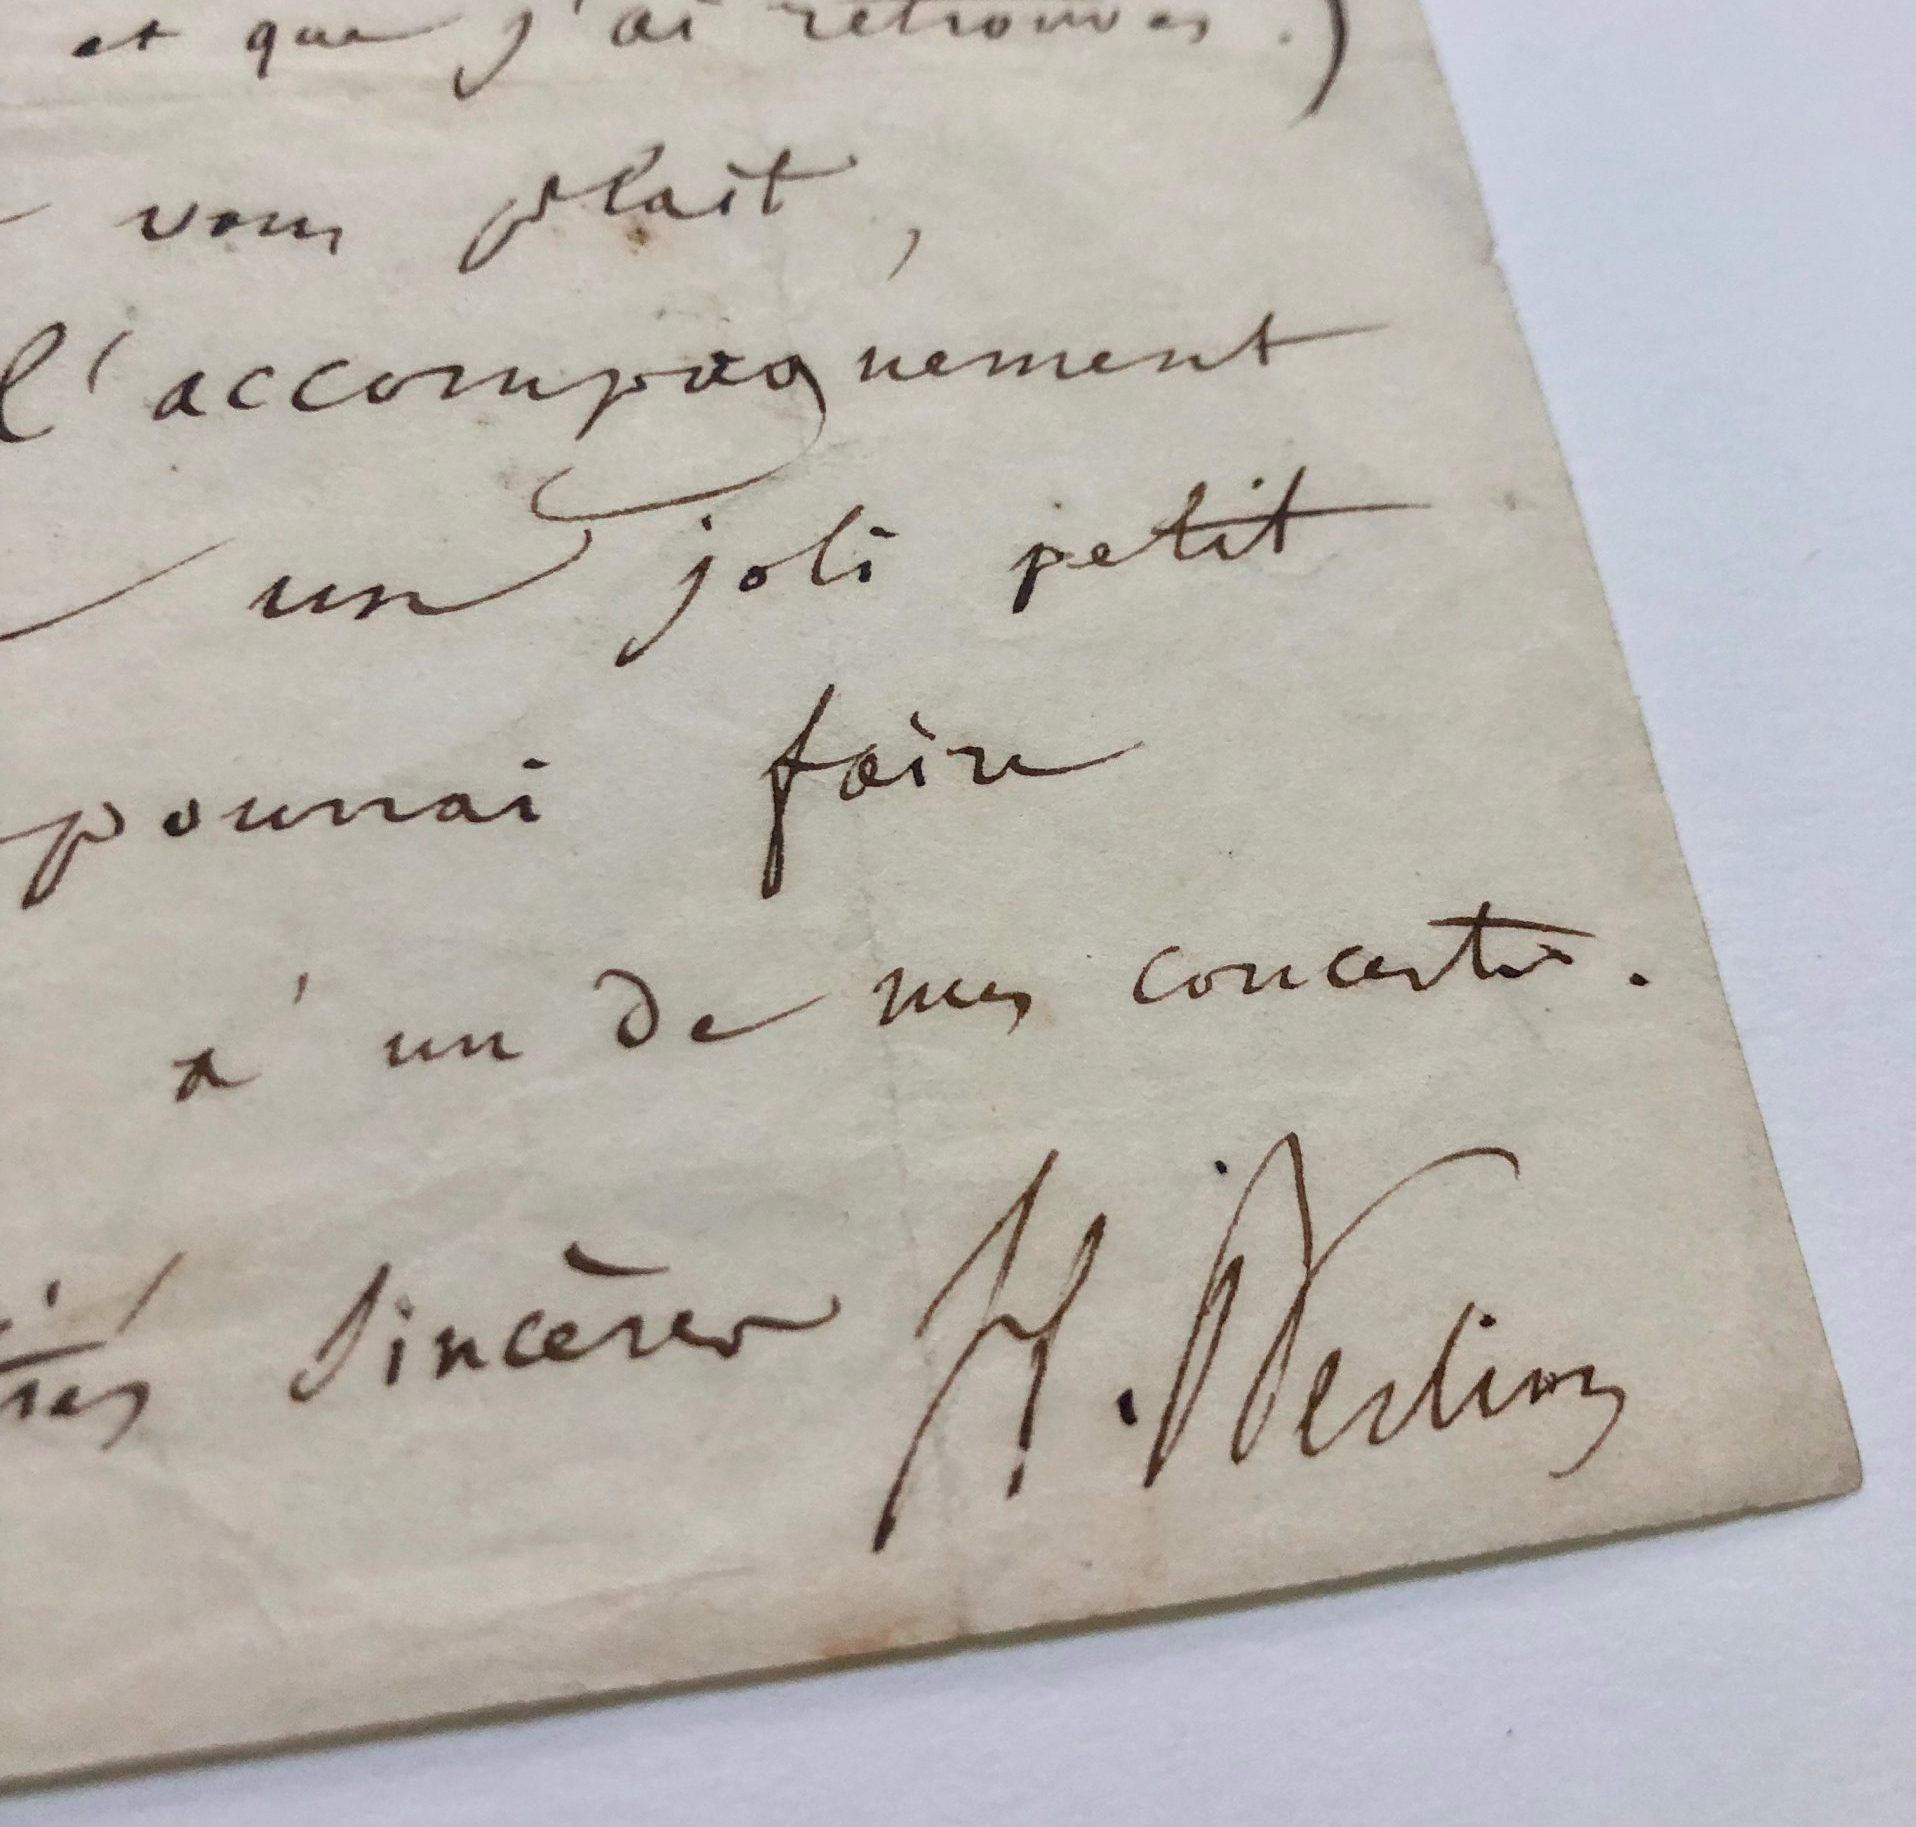 et que j'ai retrouvés.)
vous plait,
l'accompagnement
un joli petit
pourrai faire
à un de mes concerts.
sincères H. Berlioz